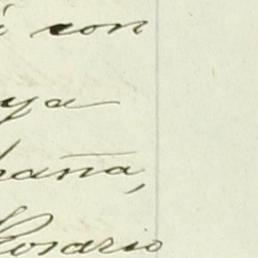 i con
ya
paña,
Rosario